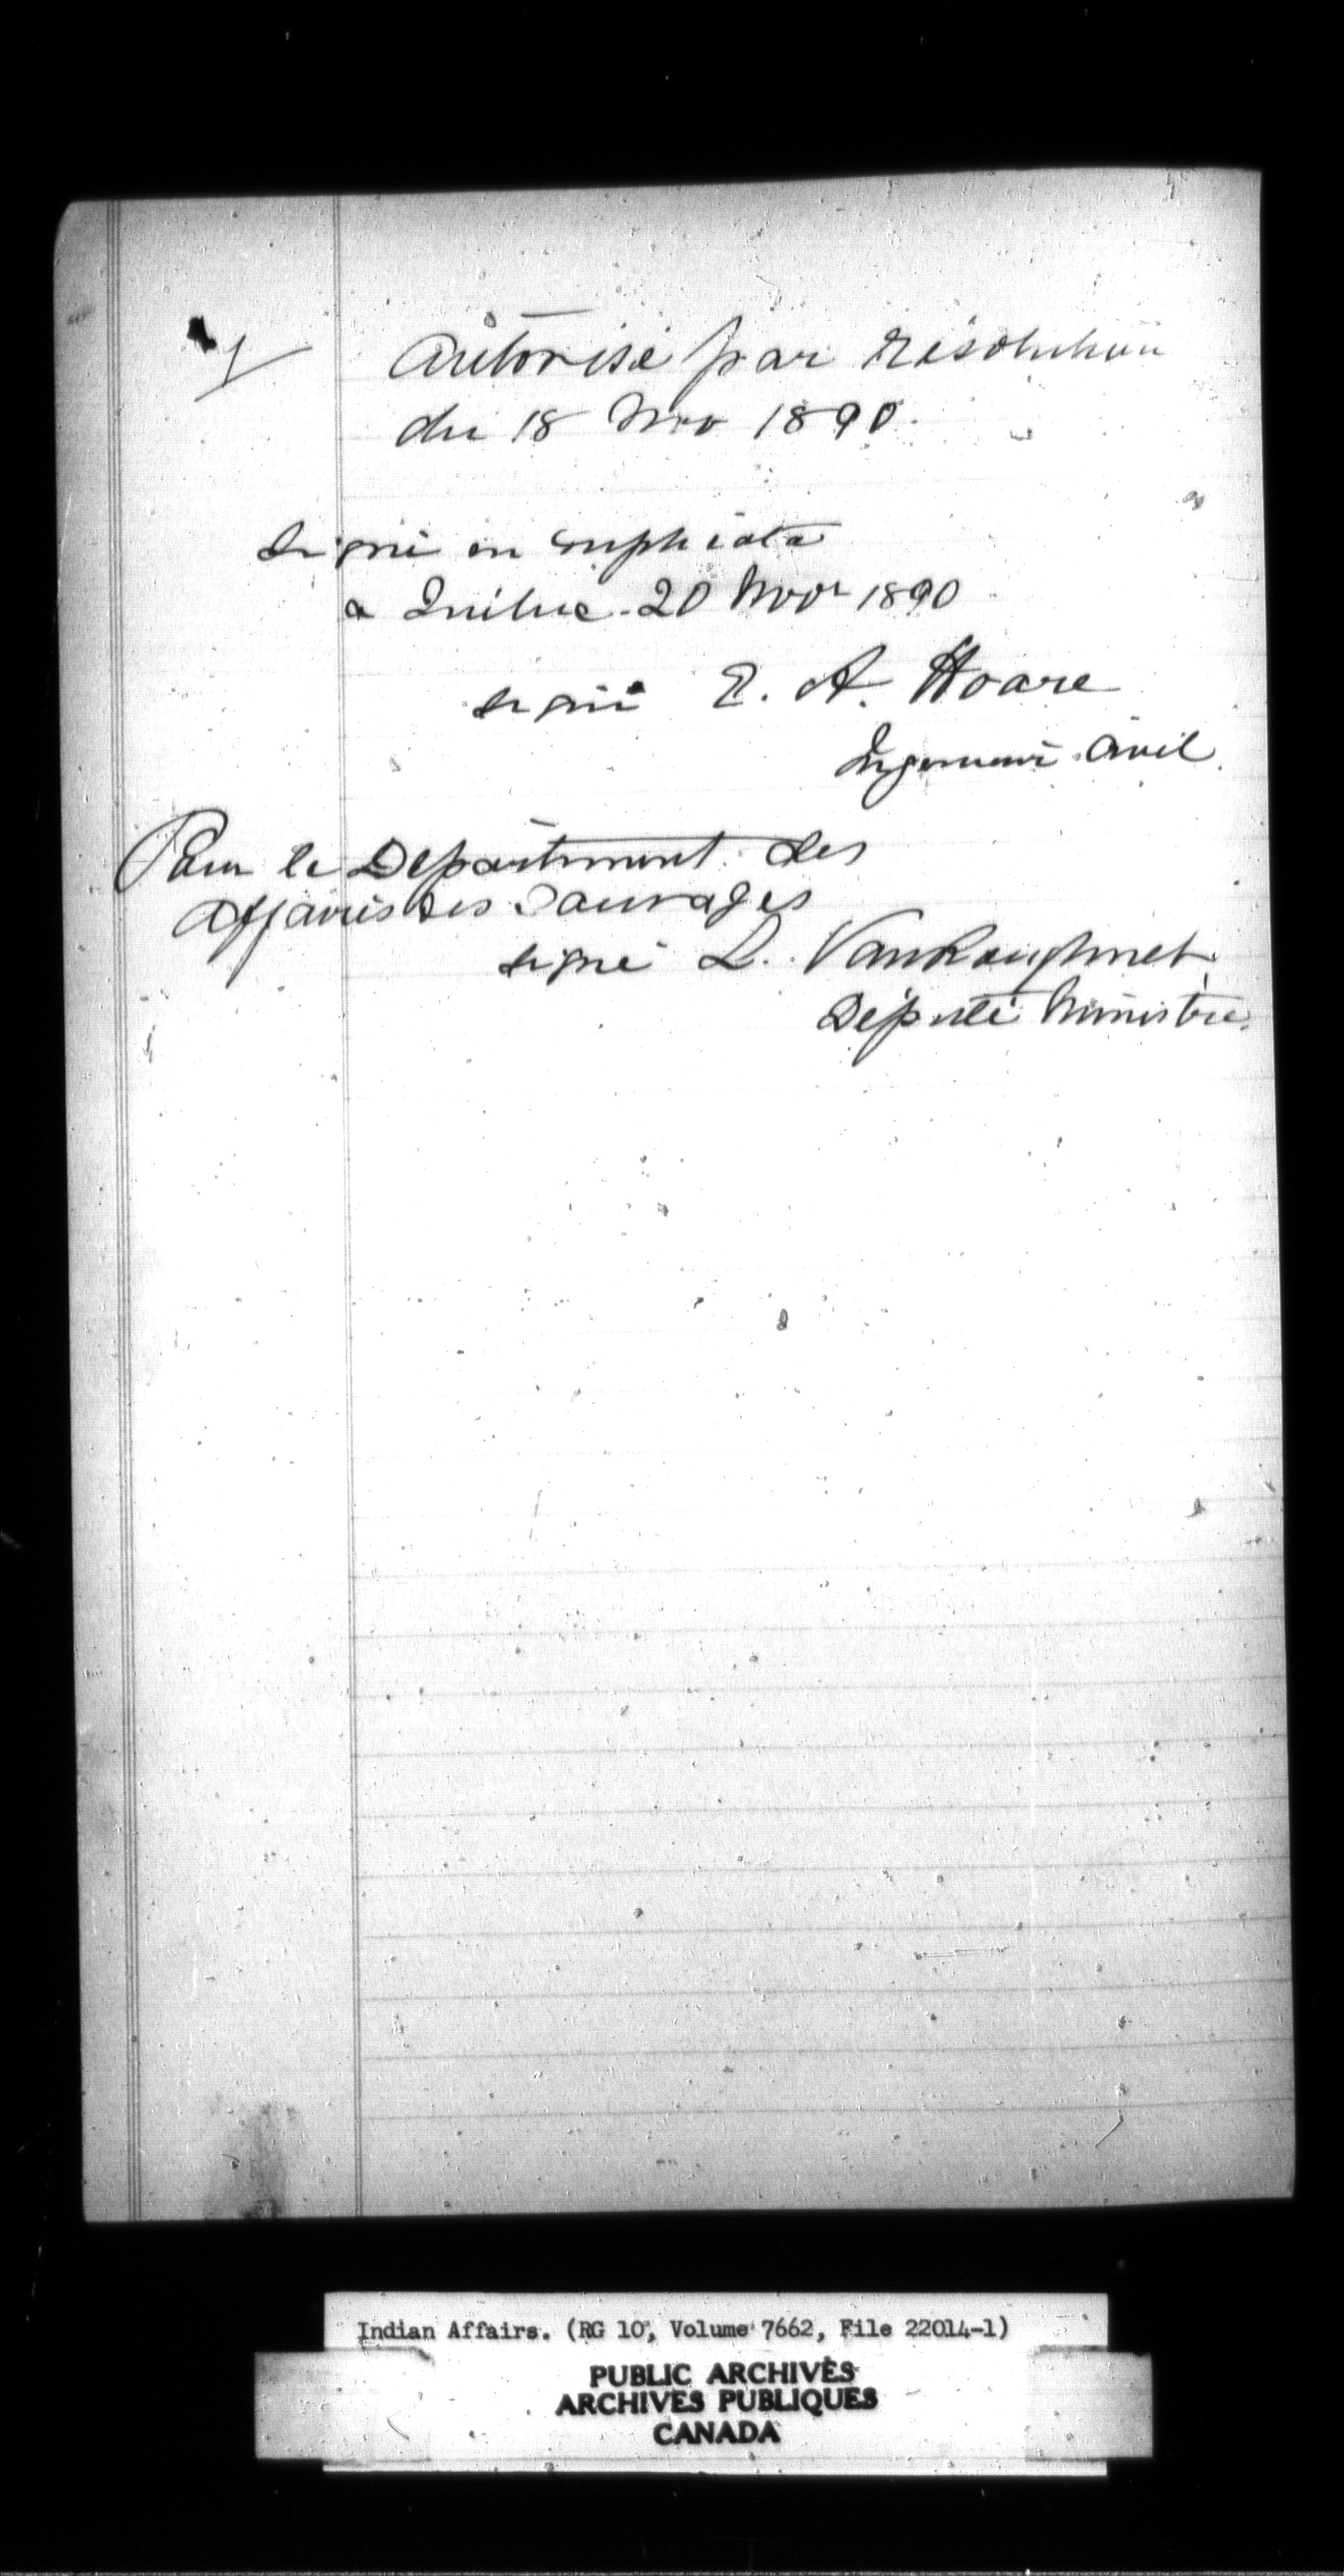 autorisé par résolution
du 18 Nov 1890.
signé en duplicata
a Québec 20 Novr 1890
signé E. A. Hoare
Ingenieur Civil.
Pour le Département des
affaires des Sauvages
signé L. VanKoughnet
Député Ministre.
Indian Affairs. (RG 10, Volume 7662, File 22014-1)
PUBLIC ARCHIVES
ARCHIVES PUBLIQUES
CANADA